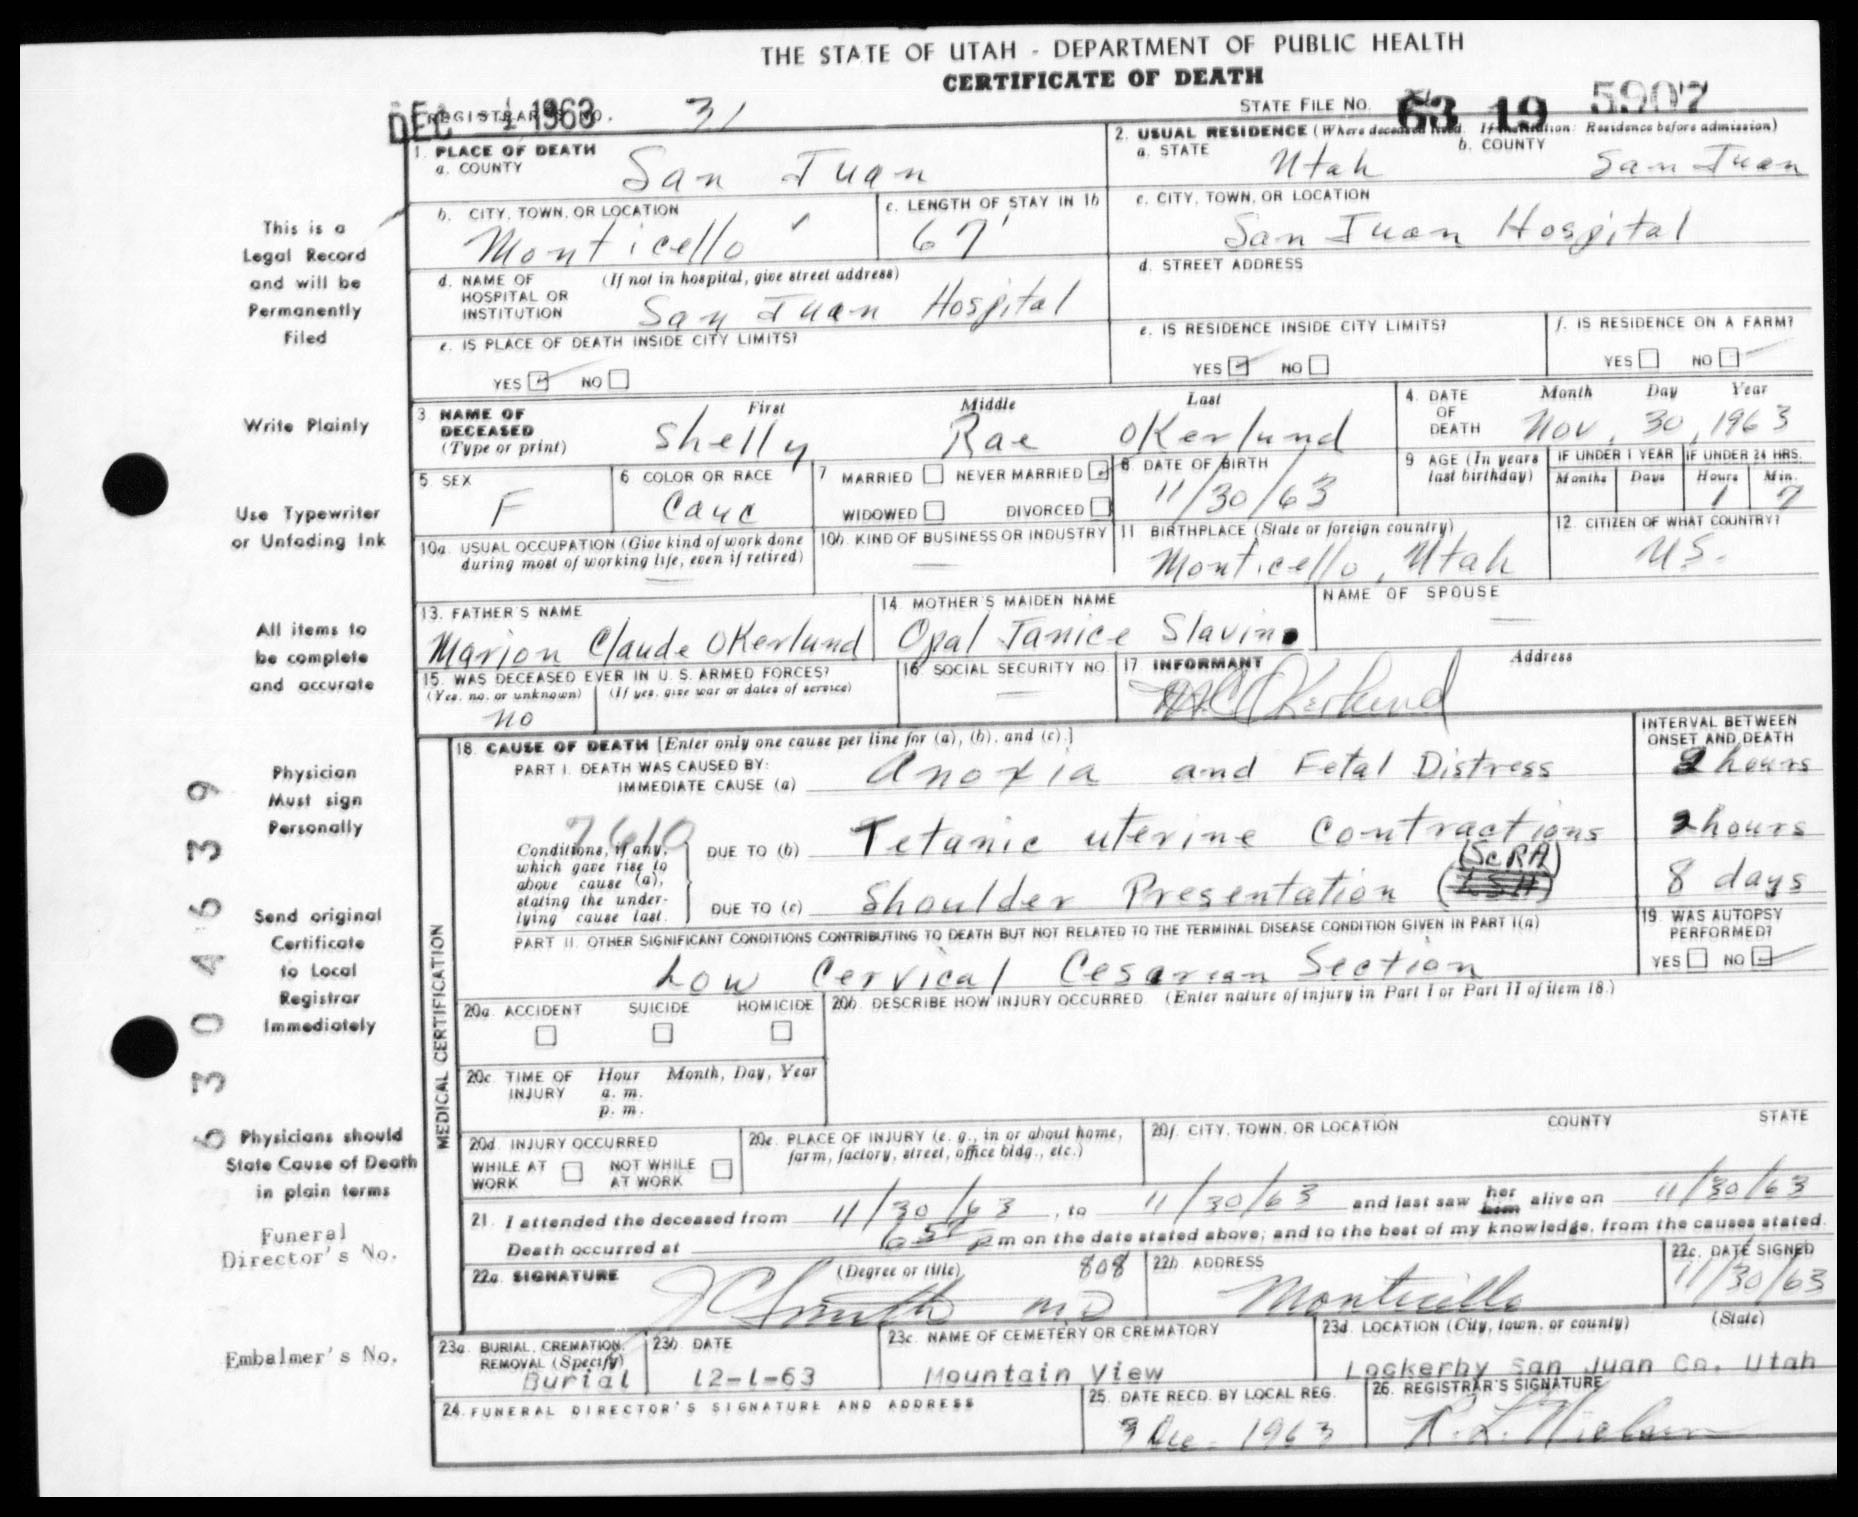 THE STATE OF UTAH - DEPARTMENT OF PUBLIC HEALTH
CERTIFICATE OF DEATH
DEC 1963 REGISTRAR'S NO. 31 STATE FILE NO. 63 19 5907
1. PLACE OF DEATH
a. COUNTY San Juan
2. USUAL RESIDENCE (Where deceased lived. If institution: Residence before admission)
a. STATE Utah b. COUNTY San Juan
b. CITY, TOWN, OR LOCATION Monticello
c. LENGTH OF STAY IN 1b 67'
c. CITY, TOWN, OR LOCATION San Juan Hospital
d. NAME OF HOSPITAL OR INSTITUTION (If not in hospital, give street address) San Juan Hospital
d. STREET ADDRESS
e. IS PLACE OF DEATH INSIDE CITY LIMITS?
YES NO
e. IS RESIDENCE INSIDE CITY LIMITS?
YES NO
f. IS RESIDENCE ON A FARM?
YES NO
3. NAME OF DECEASED (Type or print)
First Middle Last
Shelly Rae Okerlund
4. DATE OF DEATH Month Day Year
Nov. 30, 1963
5 SEX F
6 COLOR OR RACE Cauc
7 MARRIED NEVER MARRIED
WIDOWED DIVORCED
8 DATE OF BIRTH 11/30/63
9 AGE (In years last birthday)
IF UNDER 1 YEAR Months Days
IF UNDER 24 HRS. Hours Min.
1 7
10a. USUAL OCCUPATION (Give kind of work done during most of working life, even if retired) —
10b. KIND OF BUSINESS OR INDUSTRY —
11 BIRTHPLACE (State or foreign country) Monticello, Utah
12. CITIZEN OF WHAT COUNTRY? U.S.
13. FATHER'S NAME Marion Claude Okerlund
14. MOTHER'S MAIDEN NAME Opal Janice Slavin
NAME OF SPOUSE —
15. WAS DECEASED EVER IN U. S. ARMED FORCES?
(Yes, no, or unknown) (If yes, give war or dates of service)
no
16. SOCIAL SECURITY NO. —
17. INFORMANT Address
M.C. Okerlund
MEDICAL CERTIFICATION
18. CAUSE OF DEATH [Enter only one cause per line for (a), (b), and (c).]
INTERVAL BETWEEN ONSET AND DEATH
PART I. DEATH WAS CAUSED BY:
IMMEDIATE CAUSE (a) Anoxia and Fetal Distress 2 hours
7610
Conditions, if any, which gave rise to above cause (a), stating the underlying cause last.
DUE TO (b) Tetanic uterine Contractions 2 hours
DUE TO (c) Shoulder Presentation (ScRA) 8 days
PART II. OTHER SIGNIFICANT CONDITIONS CONTRIBUTING TO DEATH BUT NOT RELATED TO THE TERMINAL DISEASE CONDITION GIVEN IN PART I(a)
Low Cervical Cesarean Section
19. WAS AUTOPSY PERFORMED?
YES NO
20a. ACCIDENT SUICIDE HOMICIDE
20b. DESCRIBE HOW INJURY OCCURRED. (Enter nature of injury in Part I or Part II of item 18.)
20c. TIME OF INJURY Hour Month, Day, Year
a. m.
p. m.
20d. INJURY OCCURRED
WHILE AT WORK NOT WHILE AT WORK
20e. PLACE OF INJURY (e. g., in or about home, farm, factory, street, office bldg., etc.)
20f. CITY, TOWN, OR LOCATION COUNTY STATE
21. I attended the deceased from 11/30/63, to 11/30/63 and last saw her him alive on 11/30/63
Death occurred at 6 p m on the date stated above; and to the best of my knowledge, from the causes stated.
22a. SIGNATURE (Degree or title) 808
J C Smith MD
22b. ADDRESS Monticello
22c. DATE SIGNED 11/30/63
23a. BURIAL, CREMATION, REMOVAL (Specify) Burial
23b. DATE 12-1-63
23c. NAME OF CEMETERY OR CREMATORY Mountain View
23d. LOCATION (City, town, or county) (State)
Lockerby San Juan Co. Utah
24. FUNERAL DIRECTOR'S SIGNATURE AND ADDRESS
25. DATE RECD. BY LOCAL REG. 3 Dec. 1963
26. REGISTRAR'S SIGNATURE R. L. Nielson
This is a
Legal Record
and will be
Permanently
Filed
Write Plainly
Use Typewriter
or Unfading Ink
All items to
be complete
and accurate
Physician
Must sign
Personally
Send original
Certificate
to Local
Registrar
Immediately
Physicians should
State Cause of Death
in plain terms
Funeral
Director's No.
Embalmer's No.
63046339